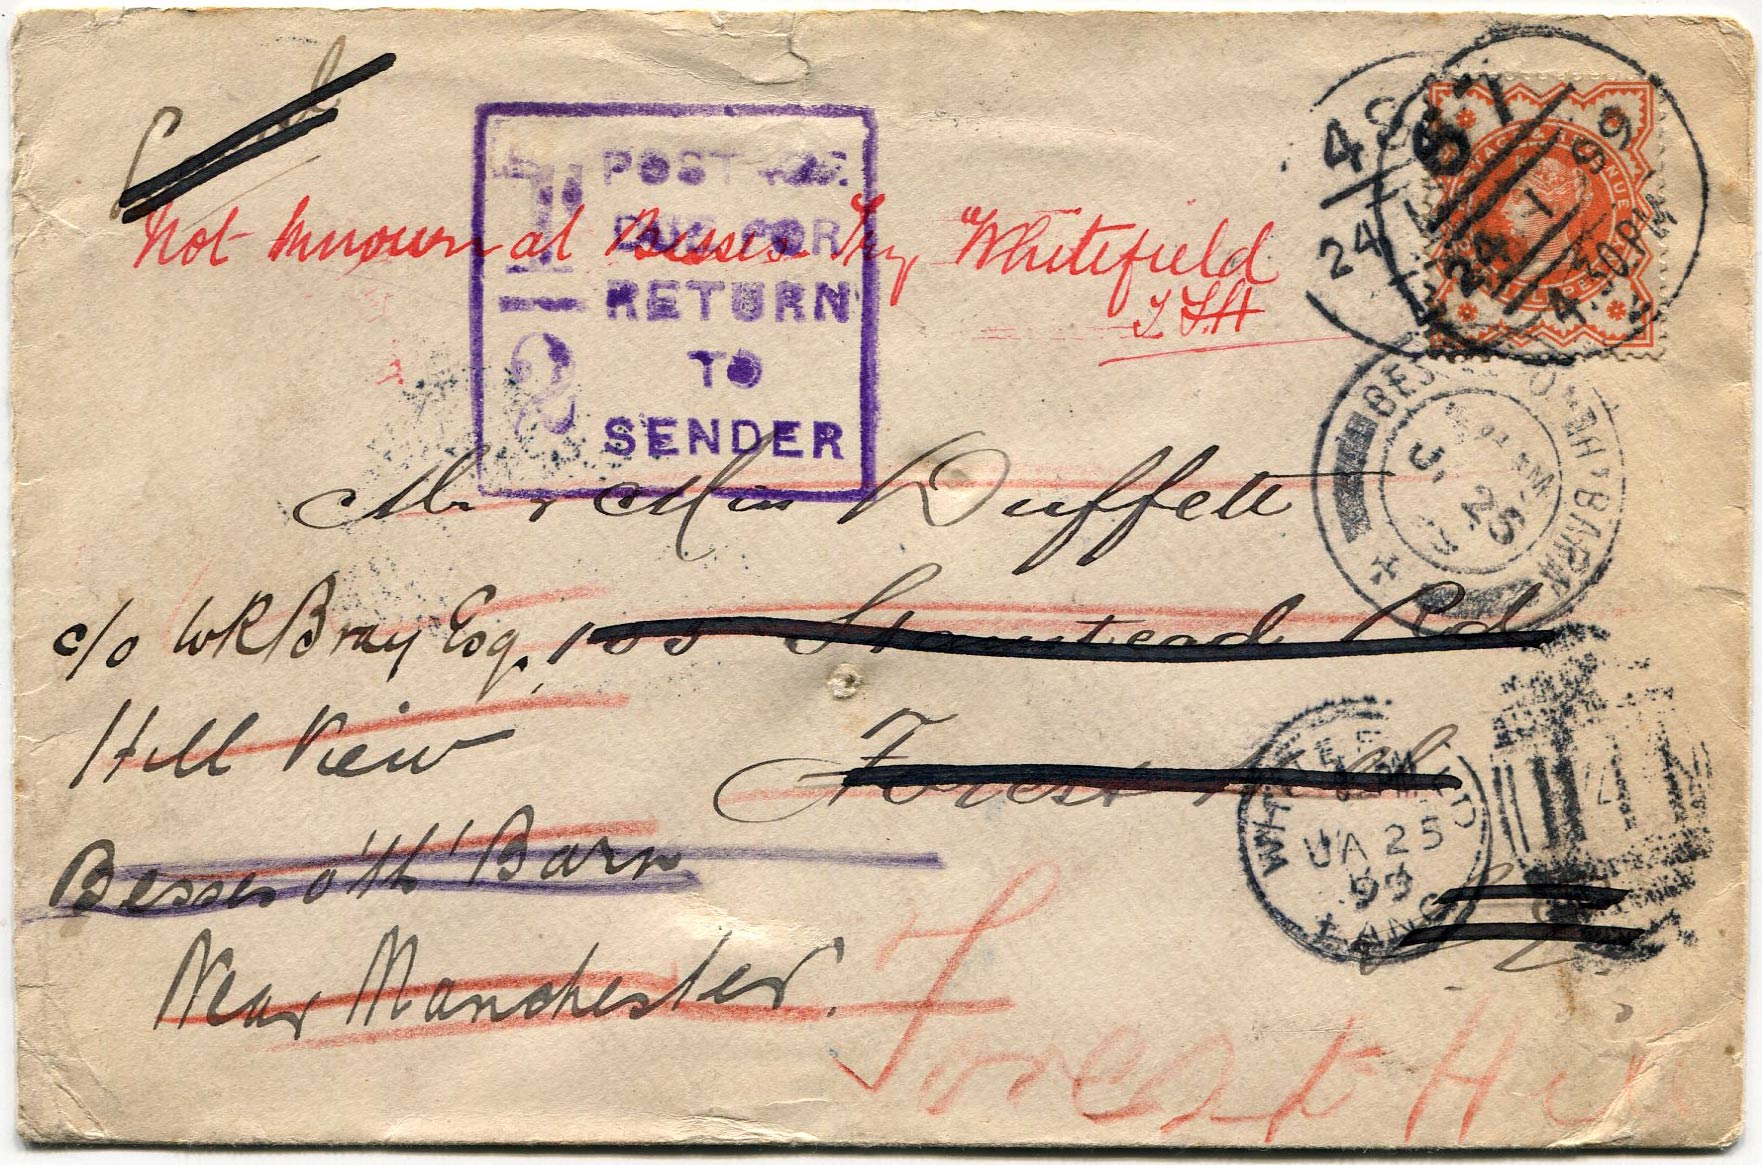 Not known at Besses. Try "Whitefield
POSTAGE
DUE FOR
RETURN
TO
SENDER
1
2
48
24
67
24 1
4.30 PM
99
BES O' TH' BARN
JA 25
Mr & Miss Duffett
c/o WR Bray Esq, 155 Stanstead Rd
Hill View
Forest Hill
Besses o'th' Barn
Near Manchester.
WHITEFIELD
JA 25
99
LANC
Forest Hill